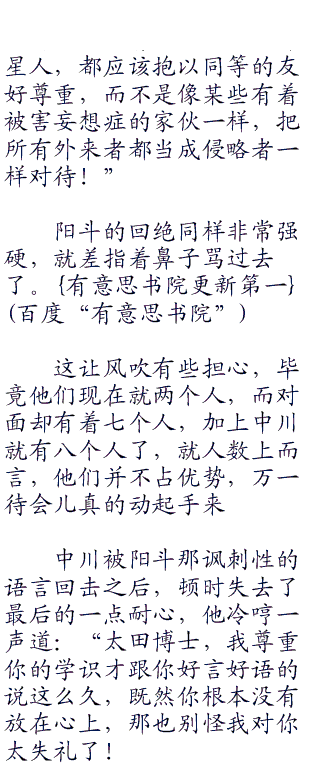 星人，都应该抱以同等的友
好尊重，而不是像某些有着
被害妄想症的家伙一样，把
所有外来者都当成侵略者一
样对待！”
阳斗的回绝同样非常强
硬，就差指着鼻子骂过去
了。{有意思书院更新第一}
(百度“有意思书院”)
这让风吹有些担心，毕
竟他们现在就两个人，而对
面却有着七个人，加上中川
就有八个人了，就人数上而
言，他们并不占优势，万一
待会儿真的动起手来
中川被阳斗那讽刺性的
语言回击之后，顿时失去了
最后的一点耐心，他冷哼一
声道：“太田博士，我尊重
你的学识才跟你好言好语的
说这么久，既然你根本没有
放在心上，那也别怪我对你
太失礼了！